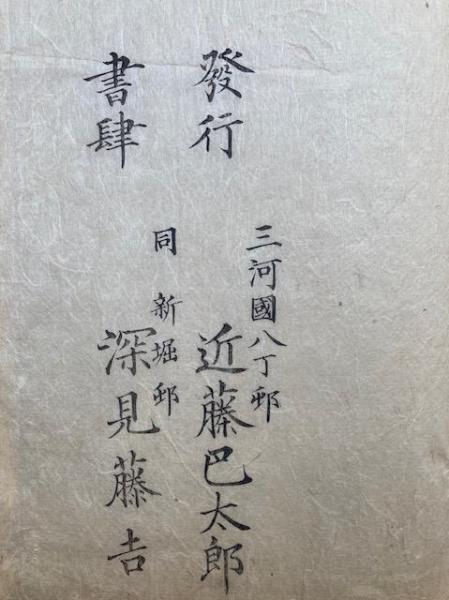 發行
書肆
三河國八丁邨
近藤巴太郎
同 新堀邨
深見藤吉